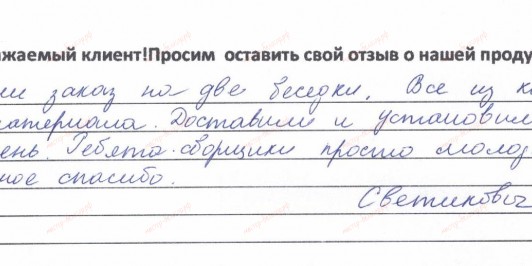 жаемый клиент!Просим оставить свой отзыв о нашей проду
ли заказ на две беседки. Все из к
материала. Доставили и установил
ень. Ребята-сборщики просто молод
ное спасибо.
Светикович